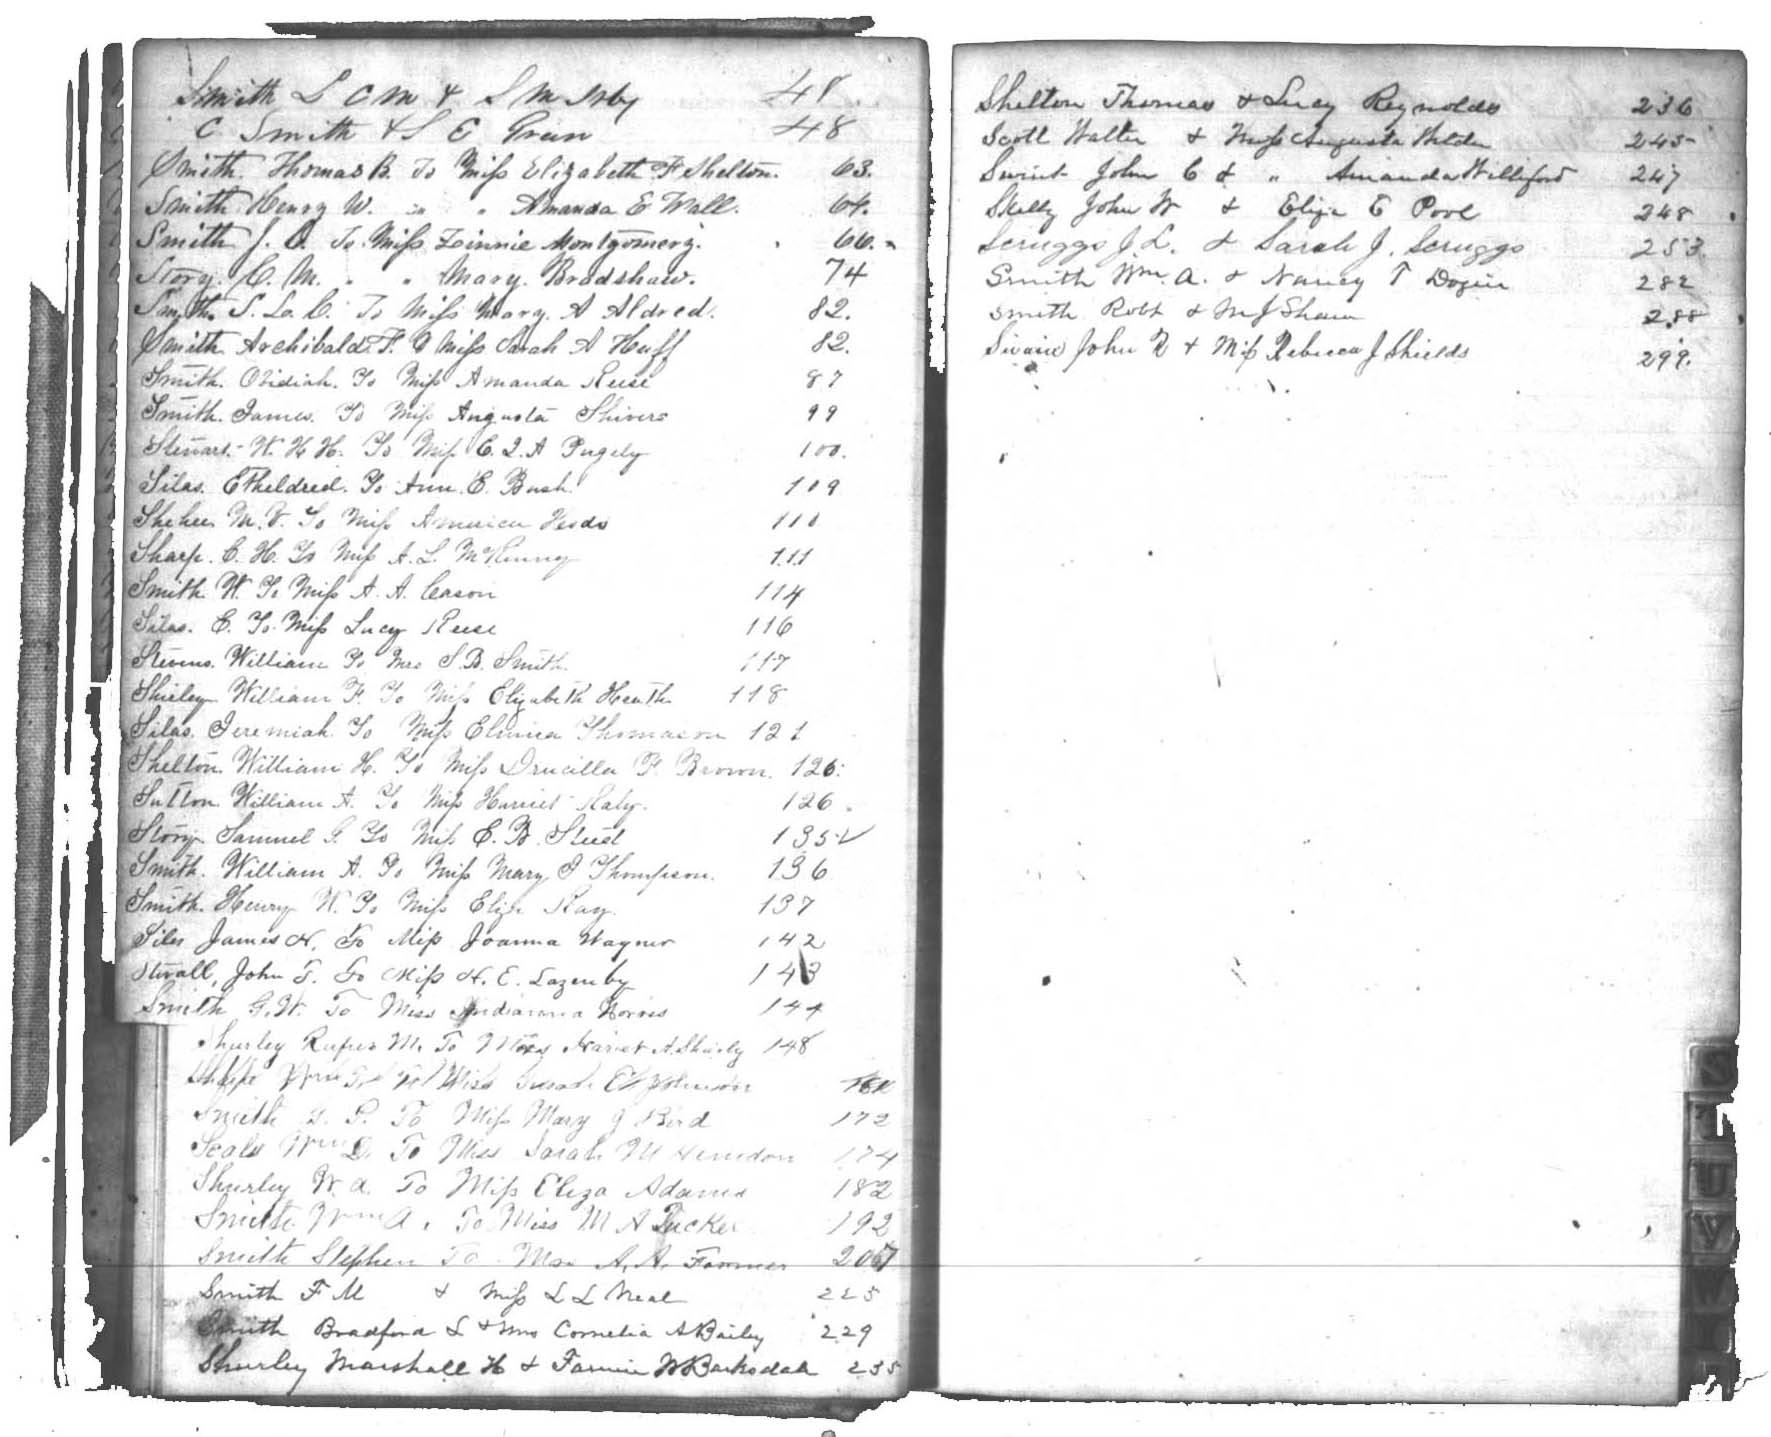 Smith L C M & S M Irby 48
C Smith & S E Green 48
Smith. Thomas B. To Miss Elizabeth F Shelton. 63.
Smith Henry W. " " Amanda E Wall. 64.
Smith J. To Miss Linnie Montgomery. 66.
Story. C. M. " " Mary. Bradshaw. 74
Smith. S. L. C. To Miss Mary. A Aldred. 82.
Smith Archibald F. & Miss Sarah A Huff 82.
Smith. Obidiah. To Miss Amanda Reese 87
Smith. James. To Miss Augusta Shivers 99
Stewart. W. H H. To Miss C. I. A Pugely 100.
Silas. Etheldred. To Ann. E. Bush. 109
Shehee M. V. To Miss America 110
Sharp. C. H. To Miss A. L. McKinny 111
Smith W. To Miss A. A. Cason 114
Silas. E. To. Miss Lucy Reese 116
Stevens. William To Mrs S. B. Smith. 117
Shirley William F. To Miss Elizabeth Heath 118
Silas. Jeremiah To Miss Elmira Thomason 121
Shelton. William H. To Miss Drucilla F. Brown. 126.
Sutton William A. To Miss Harriet Raly. 126.
Story Samuel G. To Miss E. B. Steed 135
Smith. William A. To Miss Mary J Thompson. 136
Smith. Henry W. To Miss Eliza Ray. 137
Siles James H. To Miss Joanna Wagner 142
Stovall, John T. To Miss H. E. Lazenby 143
Smith G. W. To Miss Indianna Norris 144
Shurley Rufus M. To Miss Harriet A. Shurly 148
Sharpe Wm To Miss Susan E Johnson
Smith G. P. To Miss Mary J Bird 172
Seals Wm D. To Miss Sarah M Herndon 174
Shurley W. A. To Miss Eliza Adams 182
Smith Wm A. To Miss M A Tucker 192
Smith Stephen To Mrs A. A. Farmer 207
Smith F M & Miss L L Neal 225
Smith Bradford L & Mrs Cornelia A Bailey 229
Shurley Marshall H & Fannie W Barksdale 235
Shelton Thomas & Lucy Reynolds 236
Scott Walter & Miss Augusta Wilder 245
Swint John C & " Amanda Williford 247
Skelly John W & Eliza E Pool 248
Scruggs J. L. & Sarah J. Scruggs 253
Smith Wm. A. & Nancy T Dozier 282
Smith Robt & M J Shaw 288
Swain John R & Miss Rebecca J Shields 299.
S
T
U
V
W